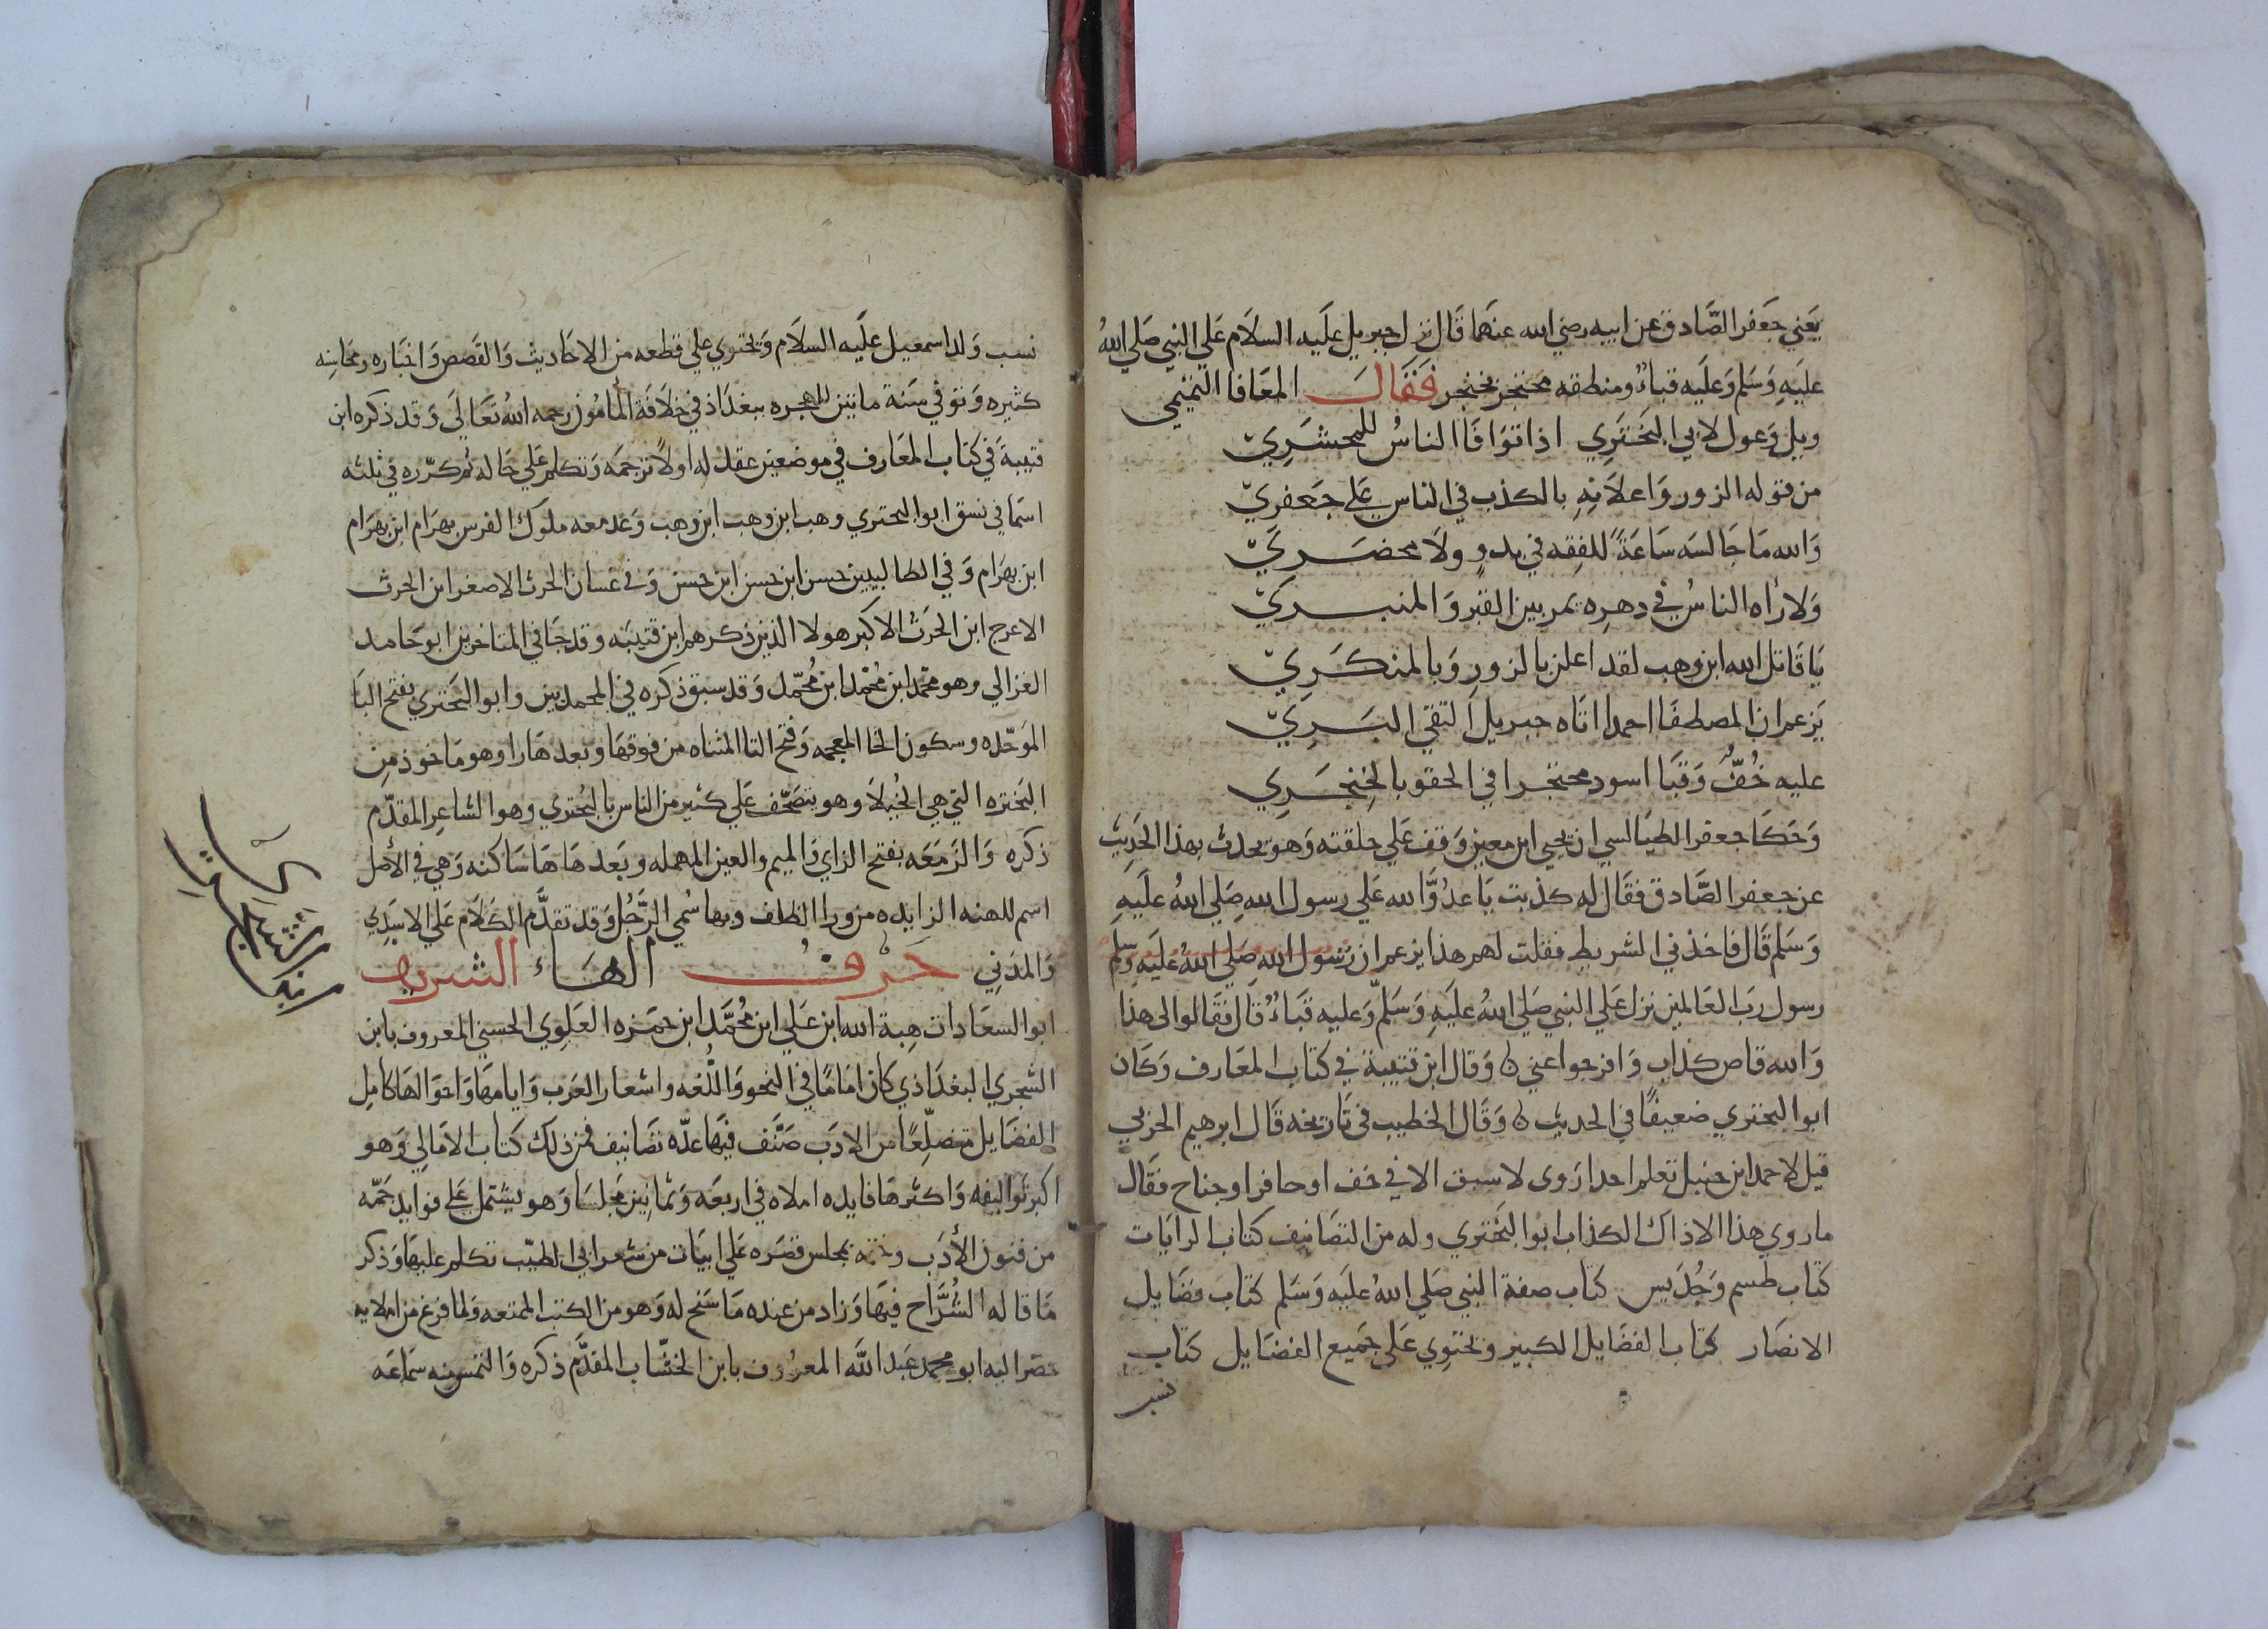 يَعَني جَعَفر الصَّادق عن ابيه رضي الله عنهَما قَال نزل جبريل علَيه السلَام عَلي النبي صَلي اللهُ
علَيهِ وَسَلم وَعلَيه قباءٌ ومنطقه محنتجر بخنجر فَقَالَ المعَافا التميمي
ويل وَعول لابي البَخترَي اذا توَافَا الناسُ للمحشرَيّ
من قوله الزور وَاعلَانِهِ بالكذب في الناس عَلي جَعفريّ
وَالله مَا جَالسَه سَاعَةً للفِقه في بدوٍ ولَا محضرَيّ
وَلا رأه الناسُ في دهرِه يمر بين القبر وَالمنبريّ
يَا قَاتل الله ابن وهب لقد اعلن بالزورِ وَبالمنكرَيّ
يَزعم ان المصطفَا احمدا اتاه جبريل التقي البَرِيّ
عليه خُفٌّ وَقبَا اسود محتجرا في الحقو بالخِنجَرِي
وَحَكَا جعفر الطيَالسي ان يحيي ابن معين وَقف عَلي حلقته وَهو يحدث بهذا الحَدِيث
عن جعفر الصَّادق فقَال له كذبت يَا عدُوَّ الله عَلي رسول الله صَلي اللهُ علَيَهِ
وَسَلم قَال فاخذني الشرط فقلت لهم هذا يزعم ان رَسُول الله صَلي اللهُ علَيهِ وسلم
رسول رَب العَالمين نزل عَلي النبي صَلي اللهُ علَيَهِ وَسَلّم وَعليه قبَاءٌ قال فقَالوا لى هذا
وَالله قاص كذاب وَافرجوا عني ه وَقال ابن قتيبة في كتاب المعَارف وَكَان
ابو البختري ضعيفًا في الحديث ه وَقَال الخطيب في تَاريخه قَال ابرهيم الحربي
قيل لاحمد ابن حنبل تعلم احدا رَوى لا سبق الا في خف او حافر او جناح فقَال
ما روي هذا الا ذاك الكذاب ابو البَختري وله من التصَانيف كتاب الرايَات
كتَاب طسم وَجُدَيس كتاب صفة النبي صَلي اللهُ علَيَه وَسَلم كتَاب فضَايل
الانصَار كتَاب الفضَايل الكبير وَيحتوِي عَلي جَميع الفضَايل كتَاب
نسب
نسب وَلد اسمعيل علَيه السلَام وَيحتوي علي قطعه من الاحَاديث وَالقَصَص وَاخبَاره ومحَاسِنه
كثيره وَتوفي سَنة مايتين للهجره ببغدَاذ في خلَافة المأمُون رحمه اللهُ تعَالَي وَقد ذكره ابن
قتيبةَ في كتاب المعَارف في موضعين عقد له اولًا ترجمَه وَتكلم عَلي حَاله ثم كرّره في ثلثه
اسمَا في نسق ابو البحتري وهب ابن وهب ابن وهب وَعد معه ملوك الفرس بهرَام ابن بهرَام
ابن بهرَام وَفي الطالبيين حسن ابن حسن ابن حسن وَفي غسان الحرث الاصغر ابن الحرث
الاعرج ابن الحَرث الاكبر هولا الذين ذكرهم ابن قتيبَه وقد جَا في المتاخرين ابو حَامد
الغزالي وهو محمَّد ابن مُحمَّد ابن مُحمّد وَقد سبق ذكره في المحمدين وابو البَختري بفتح البَا
الموَحّده وسكون الخا المعجمه وَفتح التا المثناه من فوقهَا وبعدهَا را وهو مَاخوذ مِن
البَختره التي هي الخُيلَا وهو يتصَحّف عَلي كثير من الناس بالبُحتري وهو الشاعِر المقدّم
ذكره وَالزَمَعَه بفتح الزاي وَالميم والعين المهمله وبَعدهَا هَا سَاكنه وَهي في الأصل
اسم للهنه الزايده من ورا الظلف وبها سُمي الرّجُل وَقد تقدَّم الكلَام عَلي الاسَدِي
وَالمدَنِي حَرفُ الهَاء الشريف
ابو السعَادات هِبة الله ابن عَلي ابن مُحمَّد ابن حمَزه العَلوِي الحسني المعروف بابن
الشجري البغدَاذي كَان امَامًا في النحو وَاللُّغه واشعار العَرب وَايامهَا وَاحوَالهَا كامِل
الفضَايل متضلِّعًا من الادَب صَنَّف فيهَا عدّه تصَانيف فمن ذلك كتَاب الامَالِي وَهو
اكبر تَواليفه وَاكثرهَا فايده املاه في اربعَه وَثمانِين مَجلسَا وَهو يشتمل عَلى فوايد جَمّه
من فنون الأدَب وختمه بمجلس قصَره عَلي ابيَات من شعر ابي الطيّب تكلم عليهَا وَذكر
مَا قاله الشُرَّاح فيهَا وَزاد من عنده مَا سَنح له وَهو من الكتب الممتعه وَلما فرغ من املايه
حضر اليه ابو محمد عَبد الله المعرُوف بابن الخشّاب المقدَّم ذكره وَالتمس منه سَمَاعَه
ابن الشجري